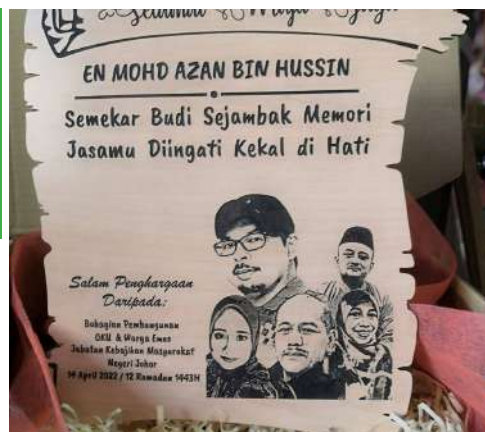 EN MOHD AZAN BIN HUSSIN
Semekar Budi Sejambak Memori
Jasamu Diingati Kekal di Hati
Salam Penghargaan
Daripada:
Bahagian Pembangunan
OKU & Warga Emas
Jabatan Kebajikan Masyarakat
Negeri Johor
14 April 2022 / 12 Ramadan 1443H